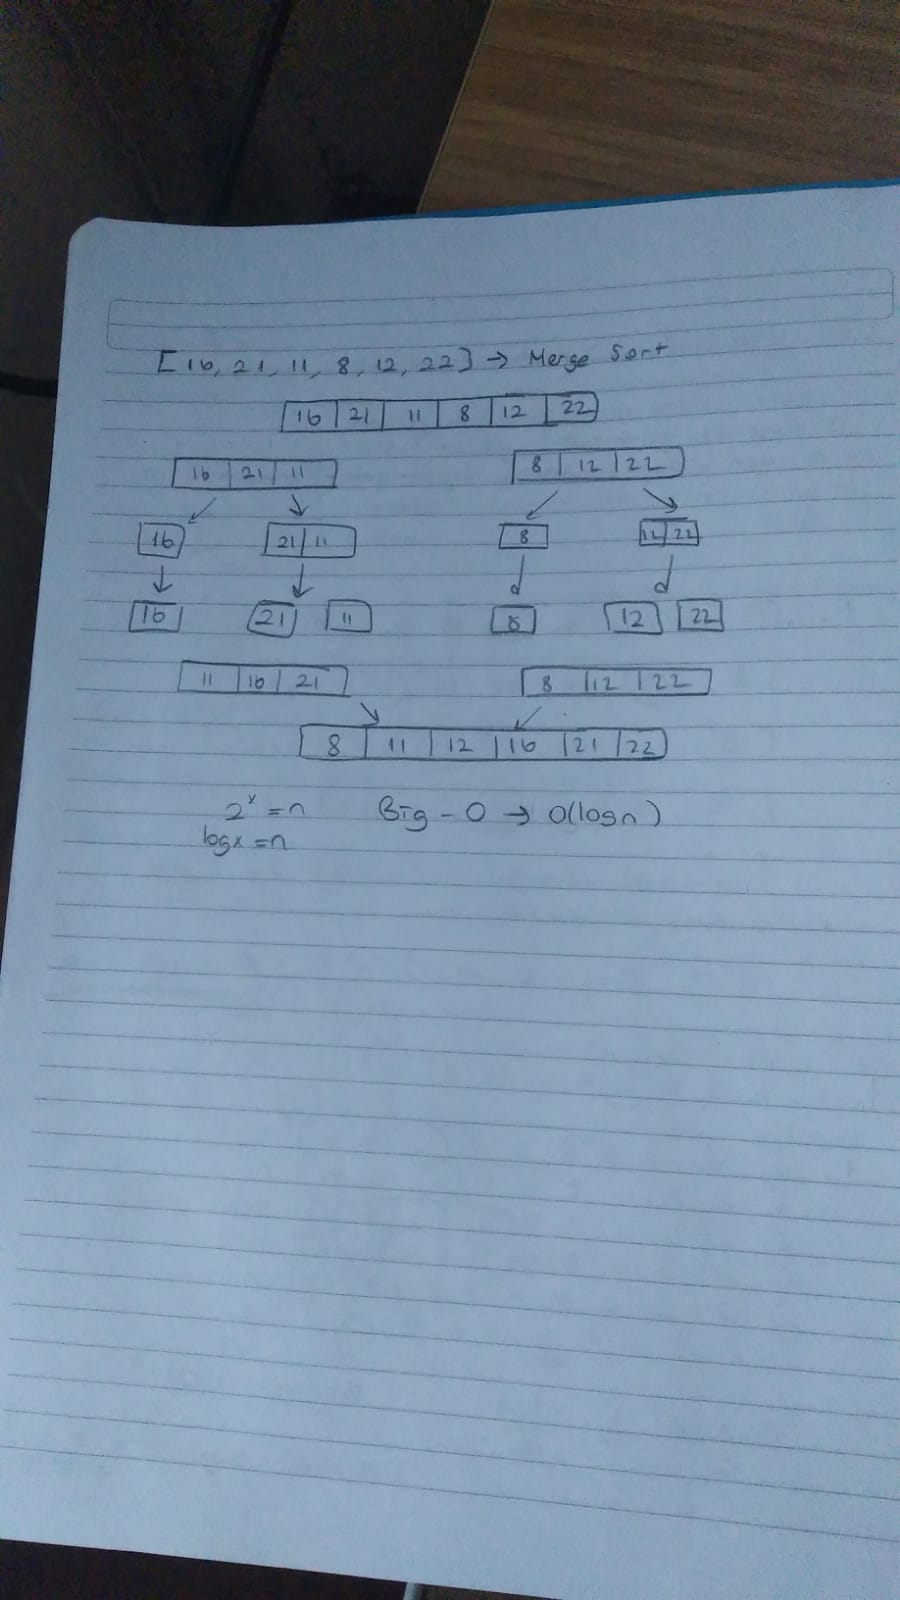 [16, 21, 11, 8, 12, 22] → Merge Sort
16 21 11 8 12 22
16 21 11 8 12 22
16 21 11 8 12 22
16 21 11 8 12 22
11 16 21 8 12 22
8 11 12 16 21 22
2ˣ = n Big - O → O(logn)
logx = n